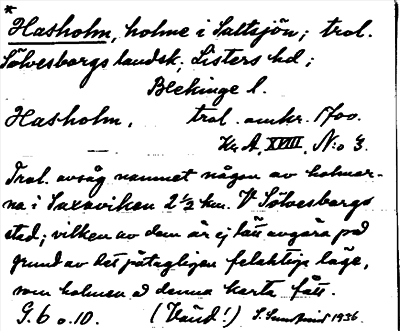 *
Hasholm, holme i Saltsjön; trol.
Sölvesborgs landsk. Listers hd;
Blekinge l.
Hasholm. trol. omkr. 1700.
Kr. A, XVIII, N:o 3.
Trol. avsåg namnet någon av holmar-
na i Saxaviken 2 1/2 km. V Sölvesborgs
stad; vilken av dem är ej lätt avgöra på
grund av det påtagligen felaktiga läge,
som holmen å denna karta fått.
G. 6 o. 10. (Vänd!) 1936.